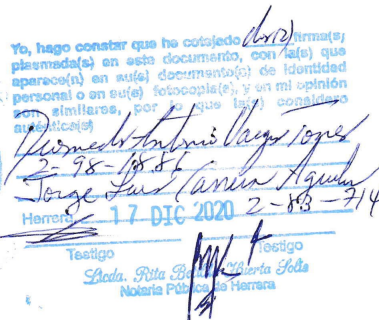 Yo, hago constar que he cotejado dos(2) firma(s)
plasmada(s) en este documento, con la(s) que
aparece(n) en su(s) documento(s) de identidad
personal o en su(s) fotocopia(s), y en mi opinión
son similares, por lo que la(s) considero
auténtica(s)
Diomedes Antonio Vargas Torres
2-98-1886
Jorge Luis Carrera Aguilar
Herrera 17 DIC 2020 2-83-714
Testigo Testigo
Licda. Rita Huerta Solís
Notaria Pública de Herrera